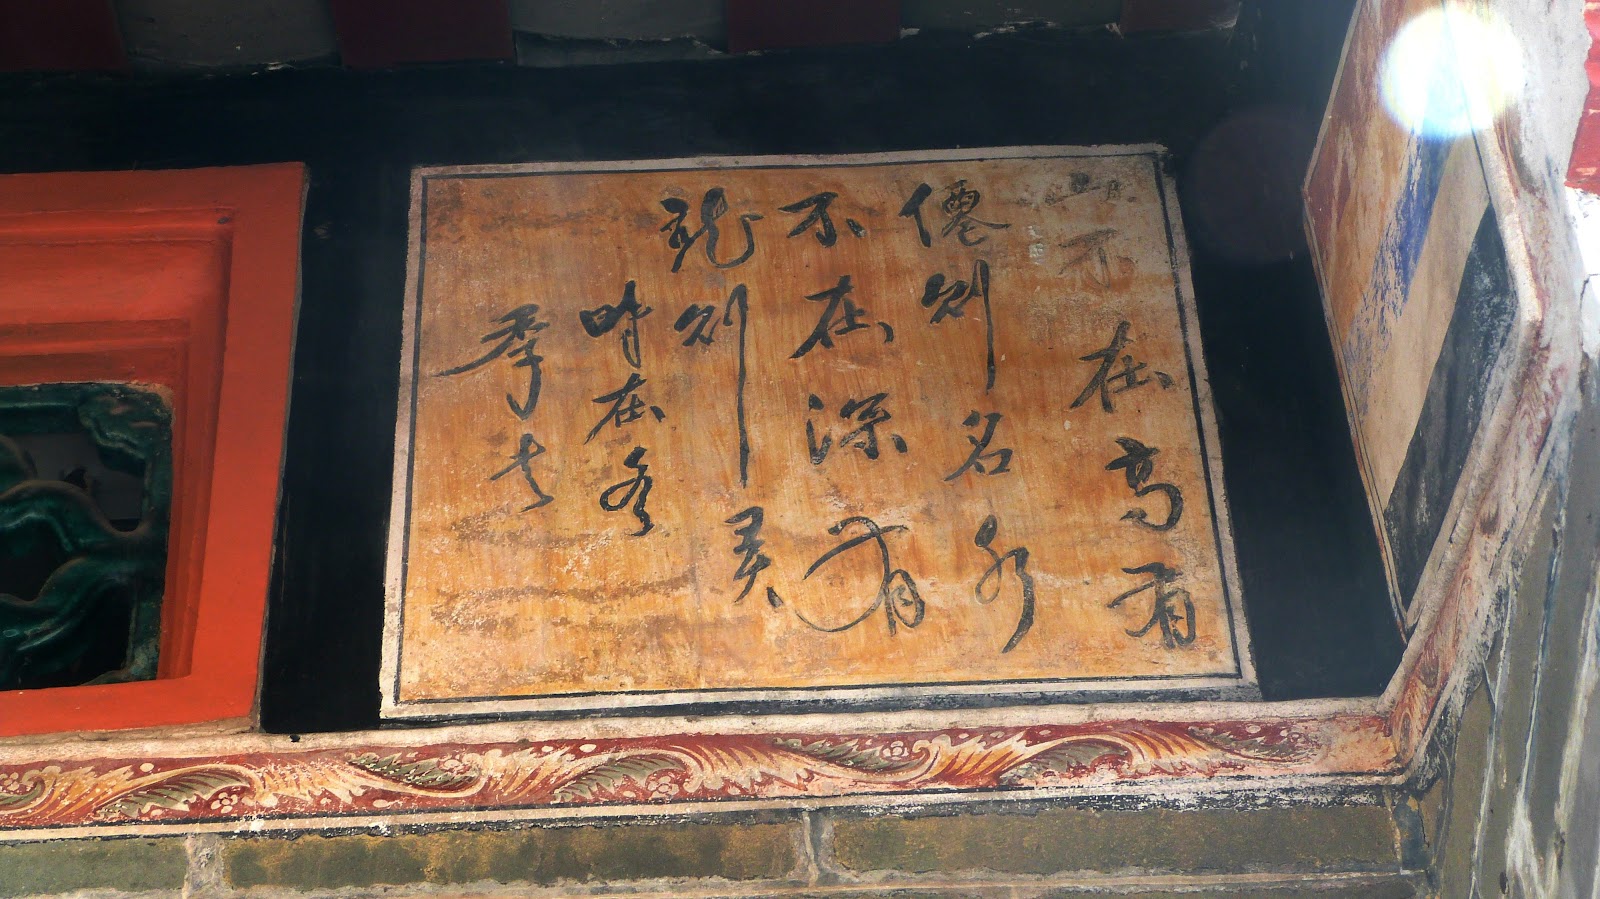 山不在高有
僊則名水
不在深有
龍則灵
時在冬
季上